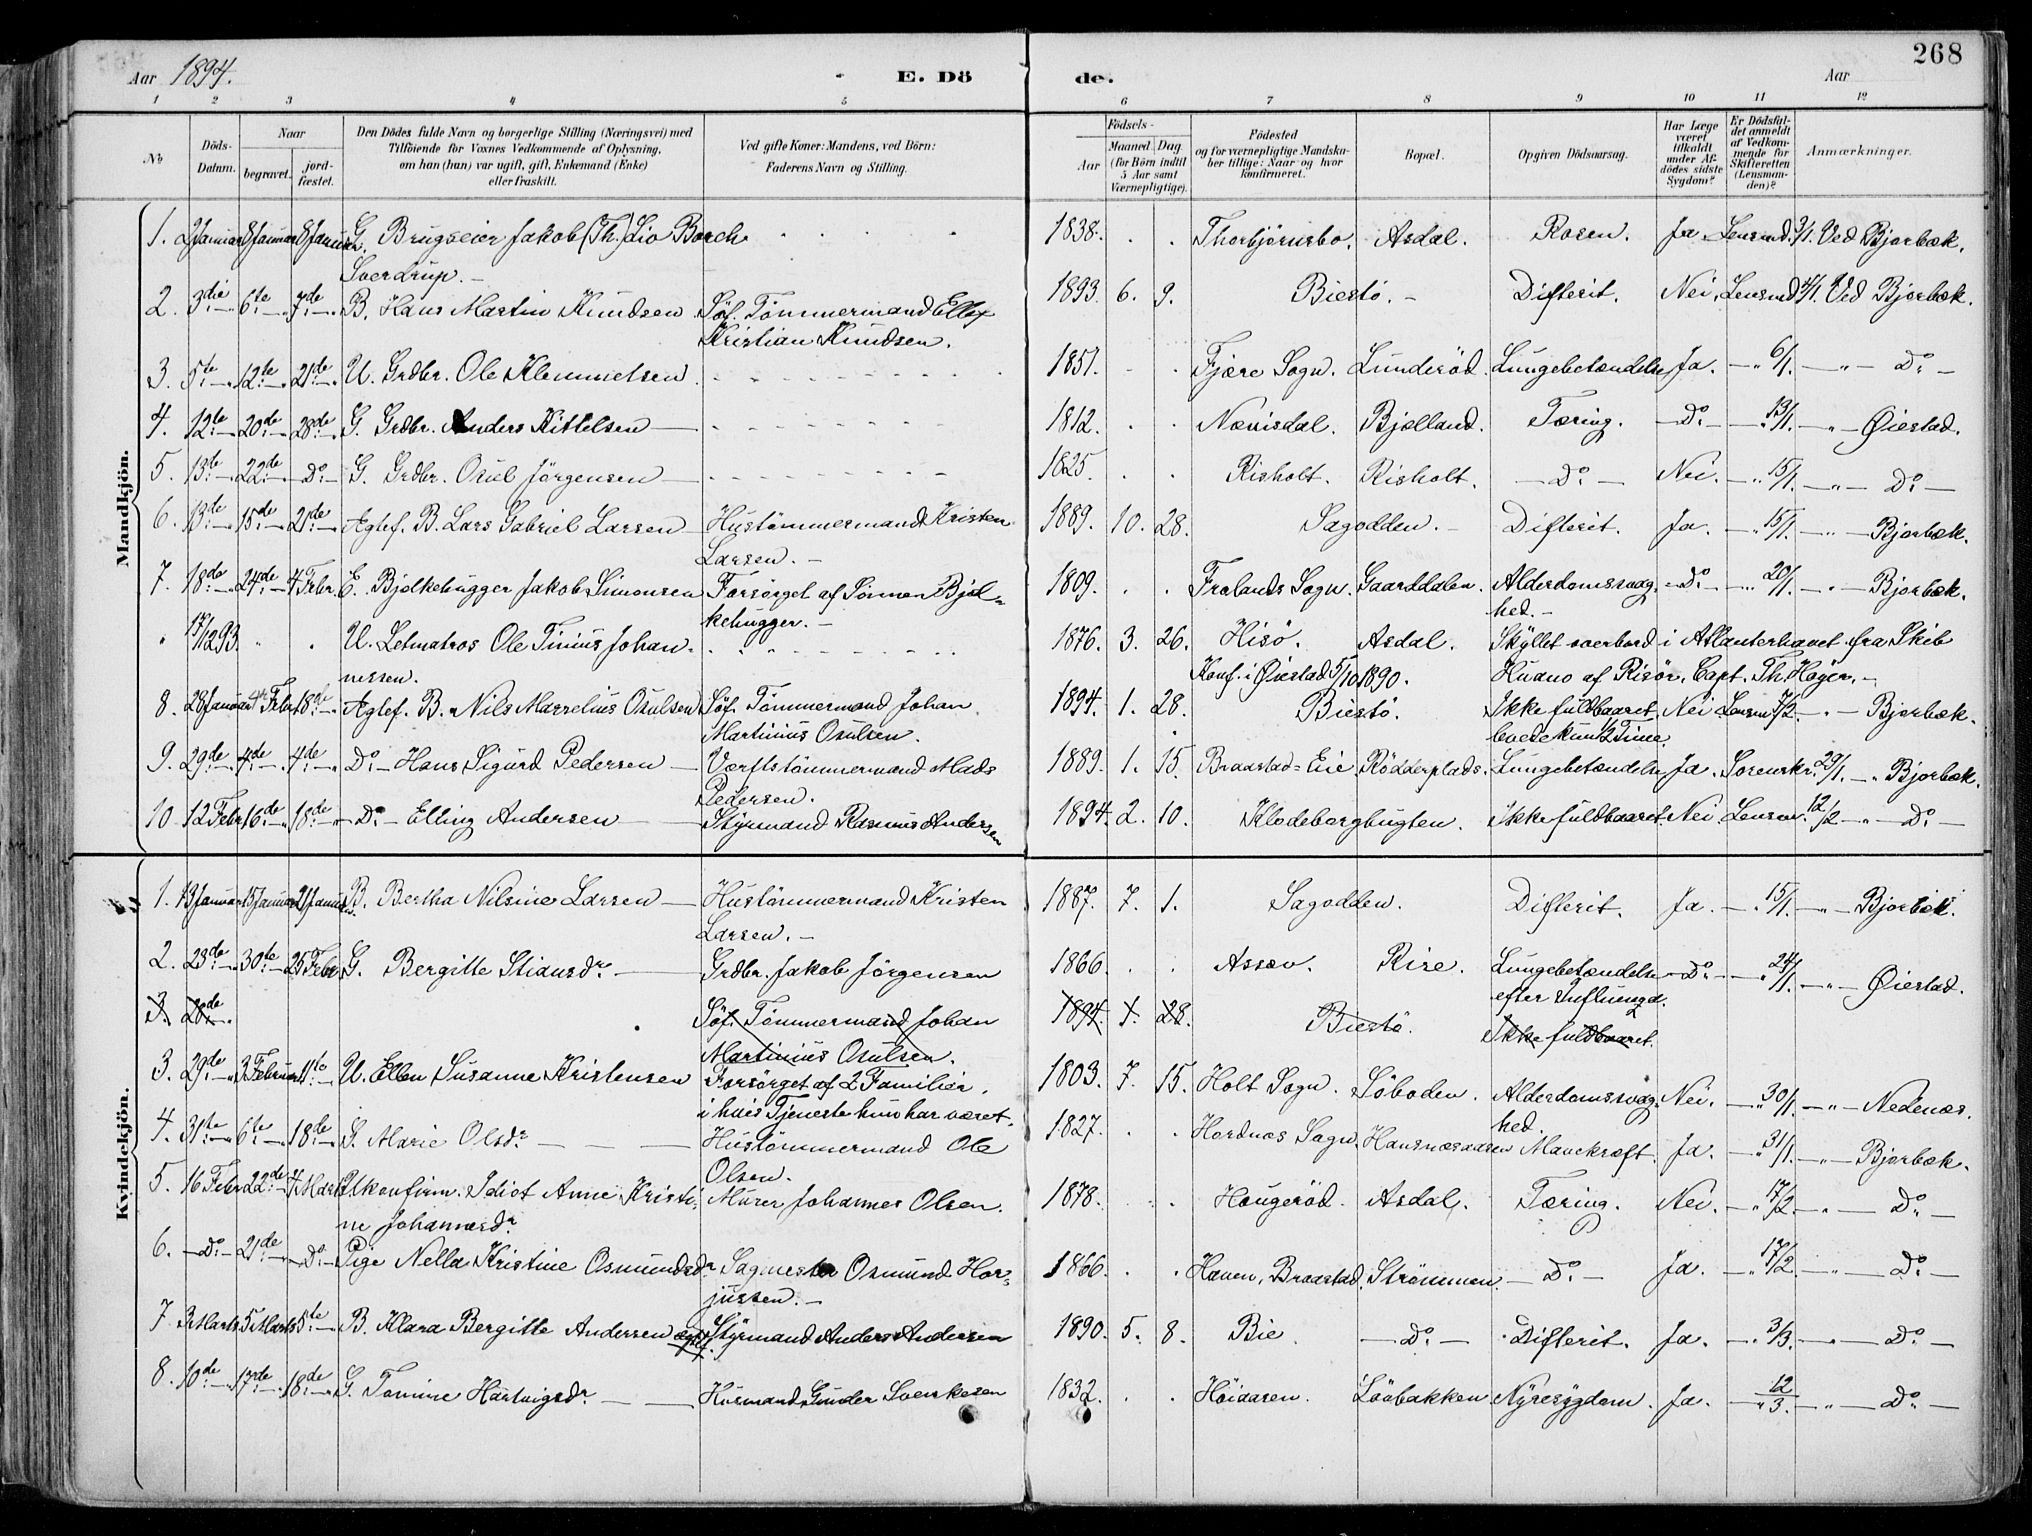 268
Aar 1894. E. Dö de. Aar
1 2 3 4 5 6 7 8 9 10 11 12
No
Döds-Datum.
Naar
begravet.
jord-fæstet.
Den Dödes fulde Navn og borgerlige Stilling (Næringsvei) med
Tilföiende for Voxnes Vedkommende af Oplysning,
om han (hun) var ugift, gift, Enkemand (Enke)
eller fraskilt.
Ved gifte Koner: Mandens, ved Börn:
Faderens Navn og Stilling.
Födsels-
Aar
Maaned. Dag
(for Börn indtil
5 Aar samt
Værnepligtige).
Födested
og for værnepligtige Mandska-
ber tillige: Naar og hvor
konfirmeret.
Bopæl.
Opgiven Dödsaarsag.
Har Læge
været
tilkaldt
under Af-
dödes sidste
Sygdom?
Er Dödsfal-
det anmeldt
af Vedkom-
mende for
Skifteretten
(Lensman-
den)?
Anmærkninger.
Mandkjön.
1. 2 Januar 8 Januar 8 Januar G. Brugseier Jakob (Th.) Lio Borch 1838. Thorbjørnsbo. Asdal. Rosen. Ja Lensmd. 3/1. Ved Bjorbæk.
Sverdrup. —
2. 3die 6te 7de B. Hans Martin Knudsen Søf. Tømmermand Ellef 1893. 6. 9. Biestø. — Difterit. Nei. Lensmd 4/1. Ved Bjorbæk.
Kristian Knudsen.
3. 5te 12te 21de U. Grdbr. Ole Klemmetsen 1851. Fjære Sogn. Lunderød. Lungebetændelse Ja. — " 6/1. — " — Do —
4. 12te 20de 28de G. Grdbr. Anders Kittelsen 1812. Nævisdal. Bjelland. Tæring. — Do — 13/1. — " — Øiestad.
5. 13te 22de Do G. Grdbr. Osul Jørgensen 1825. Risholt. Risholt. — Do — Nei. — " 15/1. — " — Do —
6. 13de 15de 21de Ægtef. B. Lars Gabriel Larsen Hustømmermand Kristen 1889. 10. 28. Sagodden. — Difterit. Ja. — " 15/1. — " — Bjorbæk.
Larsen. —
7. 18de 24de 4 Febr. E. Bjelkehugger Jakob Simonsen Forsørget af Sønnen Bjel- 1809. Frolands Sogn. Gaarddalen. Alderdomssvag- — Do — 20/1. — " — Bjorbæk.
kehugger. — hed. —
" 17/12 93. " " U. Letmatros Ole Tinius Johan- 1876. 3. 26. Hisø. Asdal. Skyllet overbord i Atlanterhavet fra Skib
nessen. Konf. i Øiestad 5/10 1890. Huano af Risør, Capt. Th. Høyer. —
8. 28 Januar 4de Febr 18de Ægtef. B. Nils Marselius Osulsen Søf. Tømmermand Johan 1894. 1. 28. Biestø. Ikke fuldbaaret. Nei Lensm 7/2. — " — Bjorbæk.
Martinius Osulsen. levede kun 1/2 Time.
9. 29de 4de 4de Do — Hans Sigurd Pedersen — Værftstømmermand Mads 1889. 1. 15. Braastad-Eie Rødderplads. Lungebetændelse Ja. Sorenskr. 29/1. — " Bjorbæk.
Pedersen.
10. 12 Febr 16de 18de — Do — Elling Andersen — Styrmand Rasmus Andersen 1894. 2. 10. Klodeborgbugten. Ikke fuldbaaret. Nei. Lensm. 12/2 — " — Do —
Kvindekjön.
1. 13 Januar 15 Januar 21 Januar B. Bertha Nilsine Larsen — Hustømmermand Kristen 1887. 7. 1. Sagodden. Difterit. Ja. — " 15/1. — " — Bjorbæk.
Larsen. —
2. 23de 30te 25 Febr G. Bergitte Stiansdr — Grdbr. Jakob Jørgensen 1866. Assæv. Rise. Lungebetændelse — Do — 24/1. — " — Øiestad.
efter Influenza.
3. 28de Søf. Tømmermand Johan 1894. 1. 28. Biestø. Ikke fuldbaaret.
Martinius Osulsen.
3. 29de 3 Februar 11te U. Ellen Susanne Kristensen Forsørget af 2 Familier, 1803. 7. 15. Holt Sogn. Søboden. Alderdomssvag- Nei. — " 30/1. — " — Nedenæs.
i hvis Tjeneste hun har været. hed.
4. 31te 6te 18de G. Marie Olsdr — Hustømmermand Ole 1827. Hordnæs Sogn. Hansnæsaasen Mavekræft. Ja. — " 31/1. — " — Bjorbæk.
Olsen.
5. 16 Febr 22de 4 Marts Ukonfirm. Idiot Anne Kristi- Murer Johannes Olsen. 1878. Haugerød. Asdal. Tæring. Nei. — " 17/2. — " — Do —
ne Johannesdr
6. — Do — 21de — Do — Pige Nella Kristine Osmundsdr Sagmester Osmund Hor- 1866. Haven, Braastad. Strømmen. — Do — Ja. — " 17/2. — " — Do —
jussen. —
7. 3 Marts 5 Marts 5te B. Klara Bergitte Andersen ægtef. Styrmand Anders Andersen 1890. 5. 8. Bie. — Do — Difterit. Ja. — " 3/3. — " — Do —
8. 10de 17de 18de G. Tomine Hartvigsdr — Husmand Gunder Svenkesen 1832. Høiaasen. Løbakken Nyresygdom. Ja. — 12/3. — " — Do —